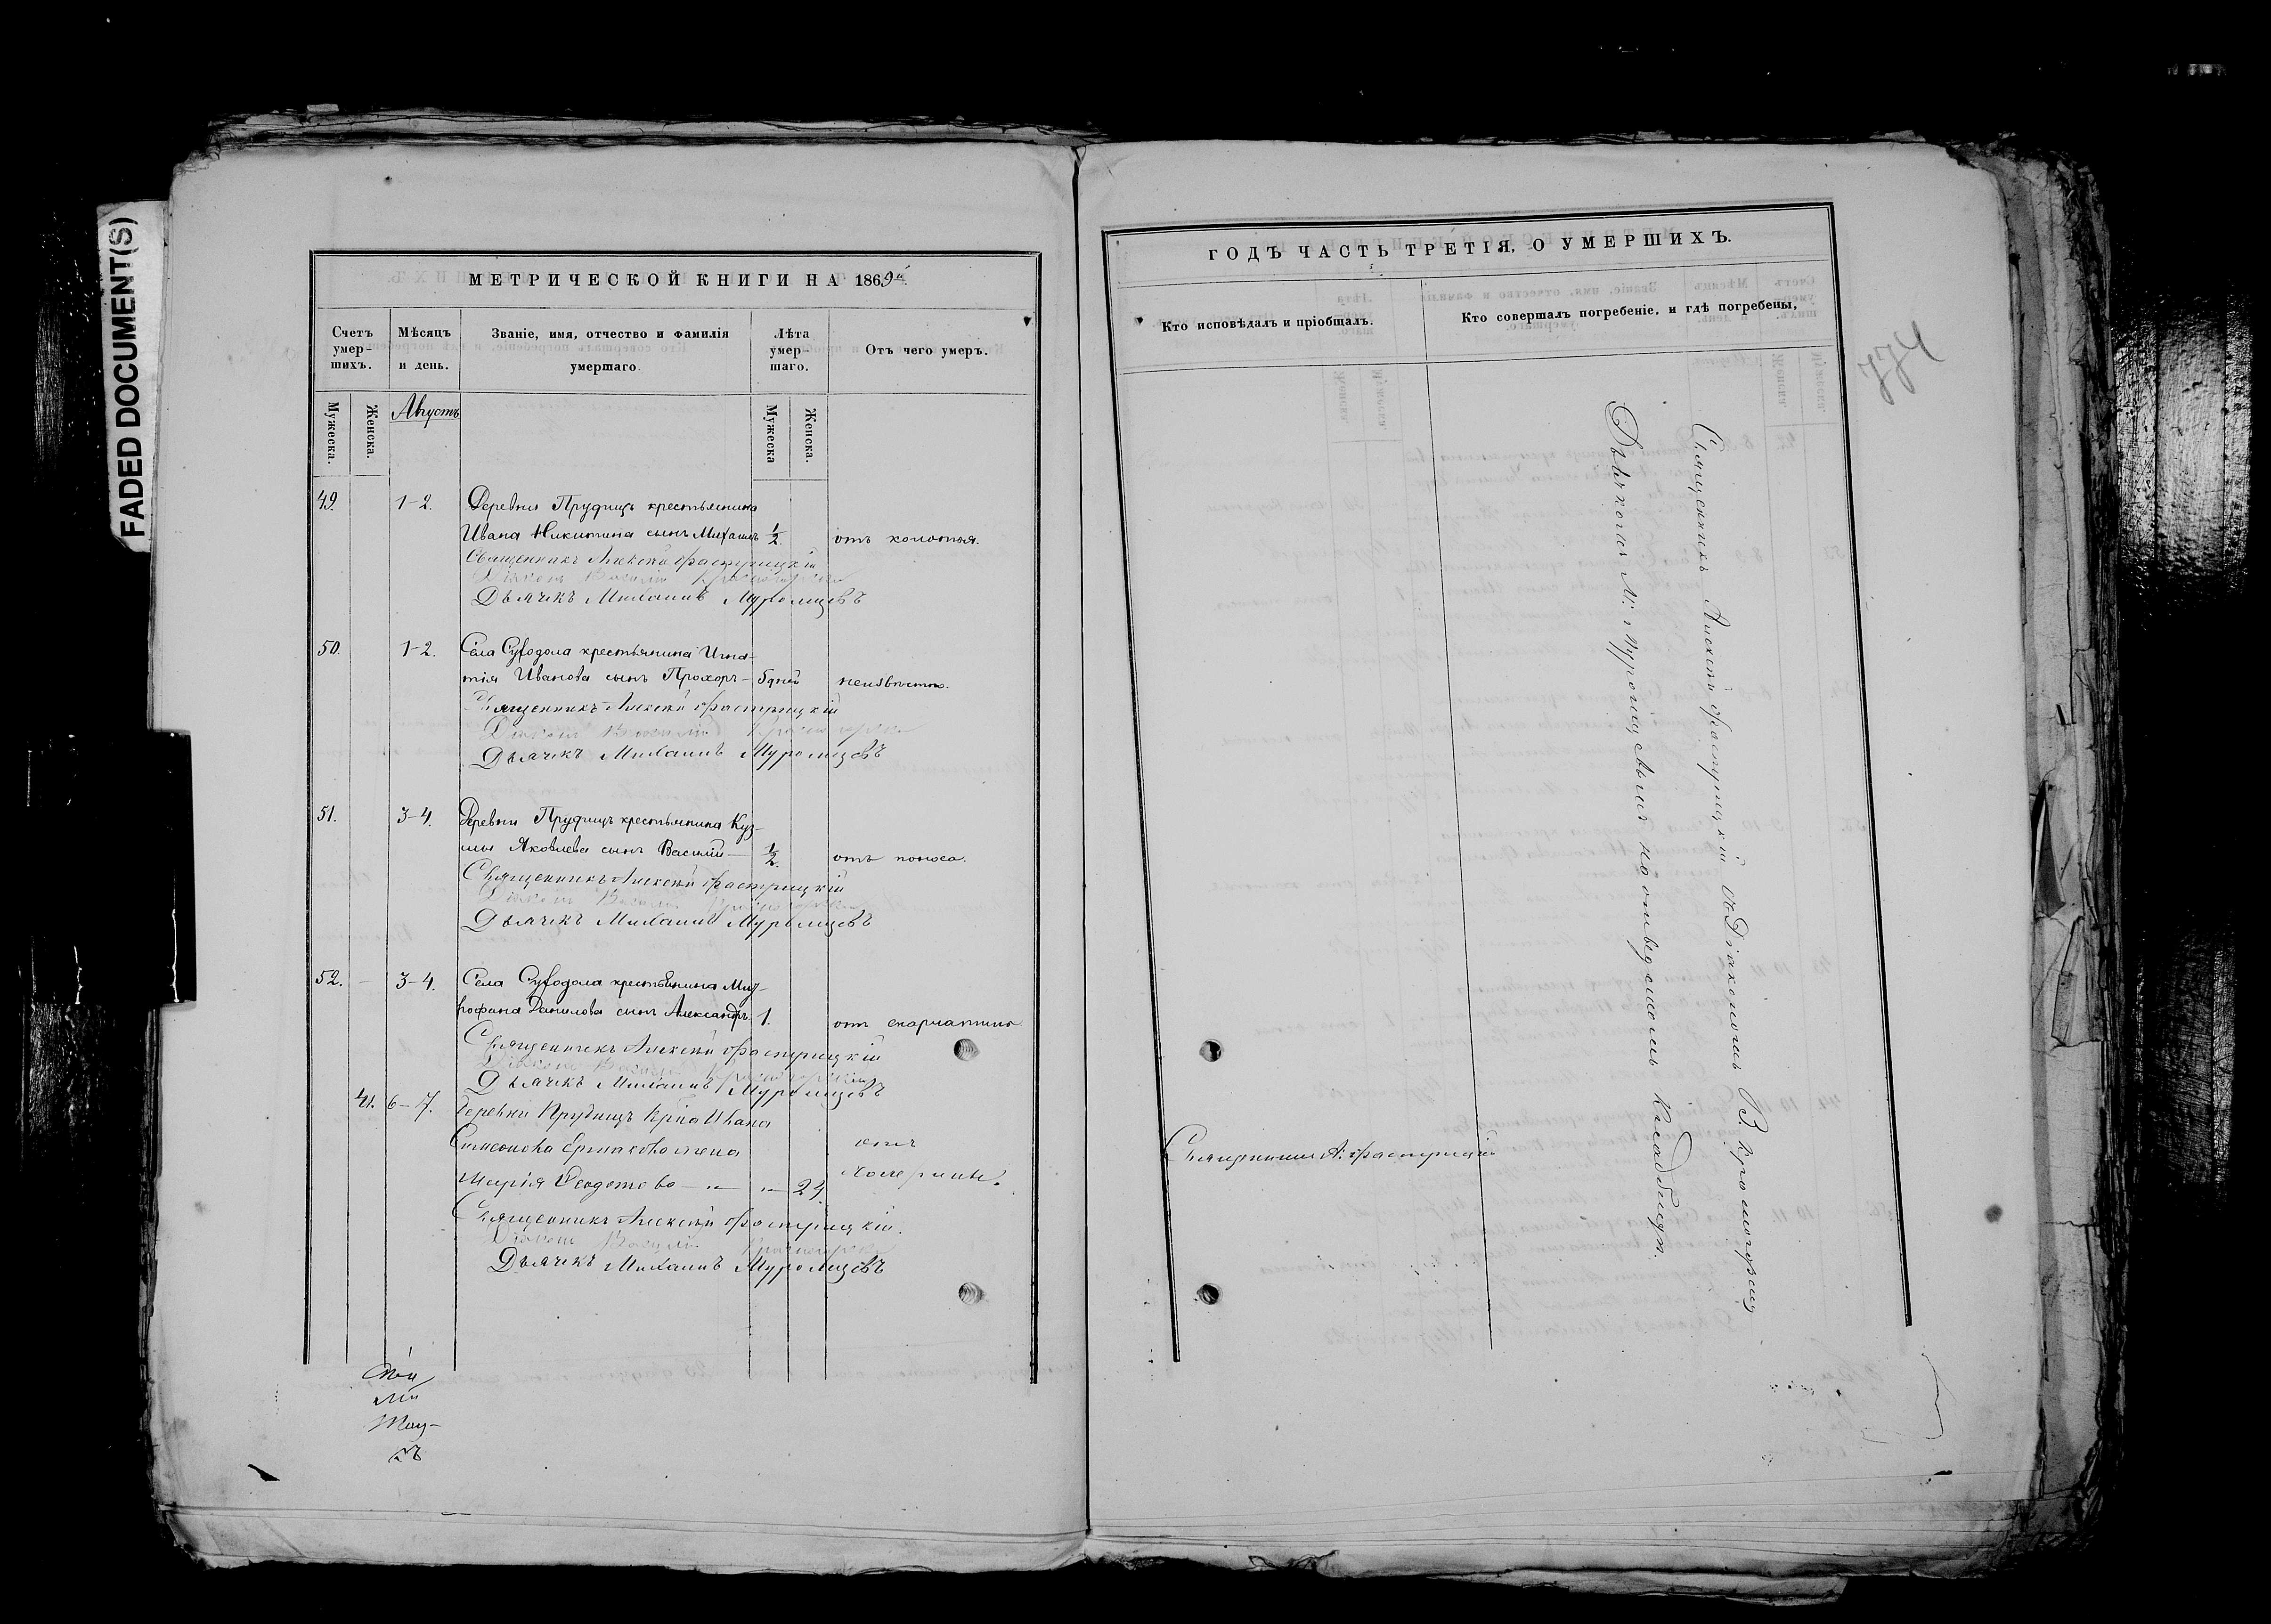 FADED DOCUMENT(S)
МЕТРИЧЕСКОЙ КНИГИ НА 1869й
Счетъ умер-шихъ.
Мѣсяцъ и день.
Званіе, имя, отчество и фамилія умершаго
Лѣта умер-шаго.
Отъ чего умеръ.
Мужеска.
Женска.
Августъ
Мужеска
Женска.
49. 1-2. Деревни Прудищъ крестьянина
Ивана Никитина сынъ Михаилъ ½. отъ колотья.
Священникъ Алексѣй
Діаконъ Василій
Дьячекъ Михаилъ Муромцевъ
50. 1-2. Села Суходола крестьянина Игна-
тія Иванова сынъ Прохоръ- 5 дней неизвѣстно.
Священникъ Алексѣй
Діаконъ Василій
Дьячекъ Михаилъ Муромцевъ
51. 3-4. Деревни Прудищъ крестьянина Куз-
мы Яковлева сынъ Василій- ½. отъ поноса.
Священникъ Алексѣй
Діаконъ Василій
Дьячекъ Михаилъ Муромцевъ
52. - 3-4. Села Суходола крестьянина Мит-
рофана Данилова сынъ Александръ 1. отъ скарлатины
Священникъ Алексѣй
Діаконъ Василій
Дьячекъ Михаилъ Муромцевъ
41. 6-7. Деревни Прудищъ Ивана
Симеонова жена отъ
Марія Ѳеодотова 24. холерины.
Священникъ Алексѣй
Діаконъ Василій
Дьячекъ Михаилъ Муромцевъ
ГОДЪ ЧАСТЬ ТРЕТІЯ, О УМЕРШИХЪ.
Кто исповѣдалъ и пріобщалъ.
Кто совершалъ погребеніе, и гдѣ погребены,
774
Священникъ Алексѣй съ Діакономъ В.
Дьячкомъ М. Муромцевымъ на отведенномъ кладбищѣ.
Священникъ А.